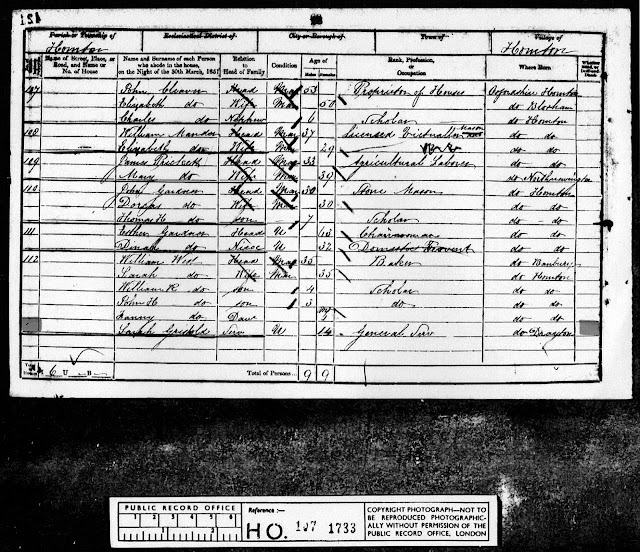 121
Parish or Township of Ecclesiastical District of City or Borough of Town of Village of
Hornton Hornton
Name of Street, Place, or Road, and Name or No. of House
Name and Surname of each Person who abode in the house, on the Night of the 30th March, 1851
Relation to Head of Family
Condition
Age of
Males Females
Rank, Profession, or Occupation
Where Born
Whether Blind, or Deaf-and-Dumb
107 John Cleaver Head Mar 53 Proprietor of Houses Oxfordshire Hornton
Elizabeth do Wife Mar 50 do Bloxham
Charles do Nephew 6 Scholar do Hornton
108 William Head Mar 37 Licensed Victualler Mason do do
Elizabeth do Wife Mar 29 do do
109 James Head Mar 33 Agricultural Labourer do do
Mary do Wife Mar 39 do
110 John Gardner Head Mar 30 Stone Mason do Hornton
Dorcas do Wife Mar 30 do do
Thomas H do son 7 Scholar do do
111 Esther Gardner Head U 63 Chairwoman do do
Dinah do Niece U 32 Domestic Servant do do
112 William West Head Mar 35 Baker do Banbury
Sarah do Wife Mar 35 do Hornton
William R do son 4 Scholar do do
John H do son 3 do do do
Fanny do Daur do do
Sarah Griffold Serv U 14 General Serv do Drayton
6 U B Total of Persons 9 9
PUBLIC RECORD OFFICE
1 2 3 4 5 6
1 2
Reference :-
HO. 107 1733
COPYRIGHT PHOTOGRAPH—NOT TO
BE REPRODUCED PHOTOGRAPHIC-
ALLY WITHOUT PERMISSION OF THE
PUBLIC RECORD OFFICE, LONDON